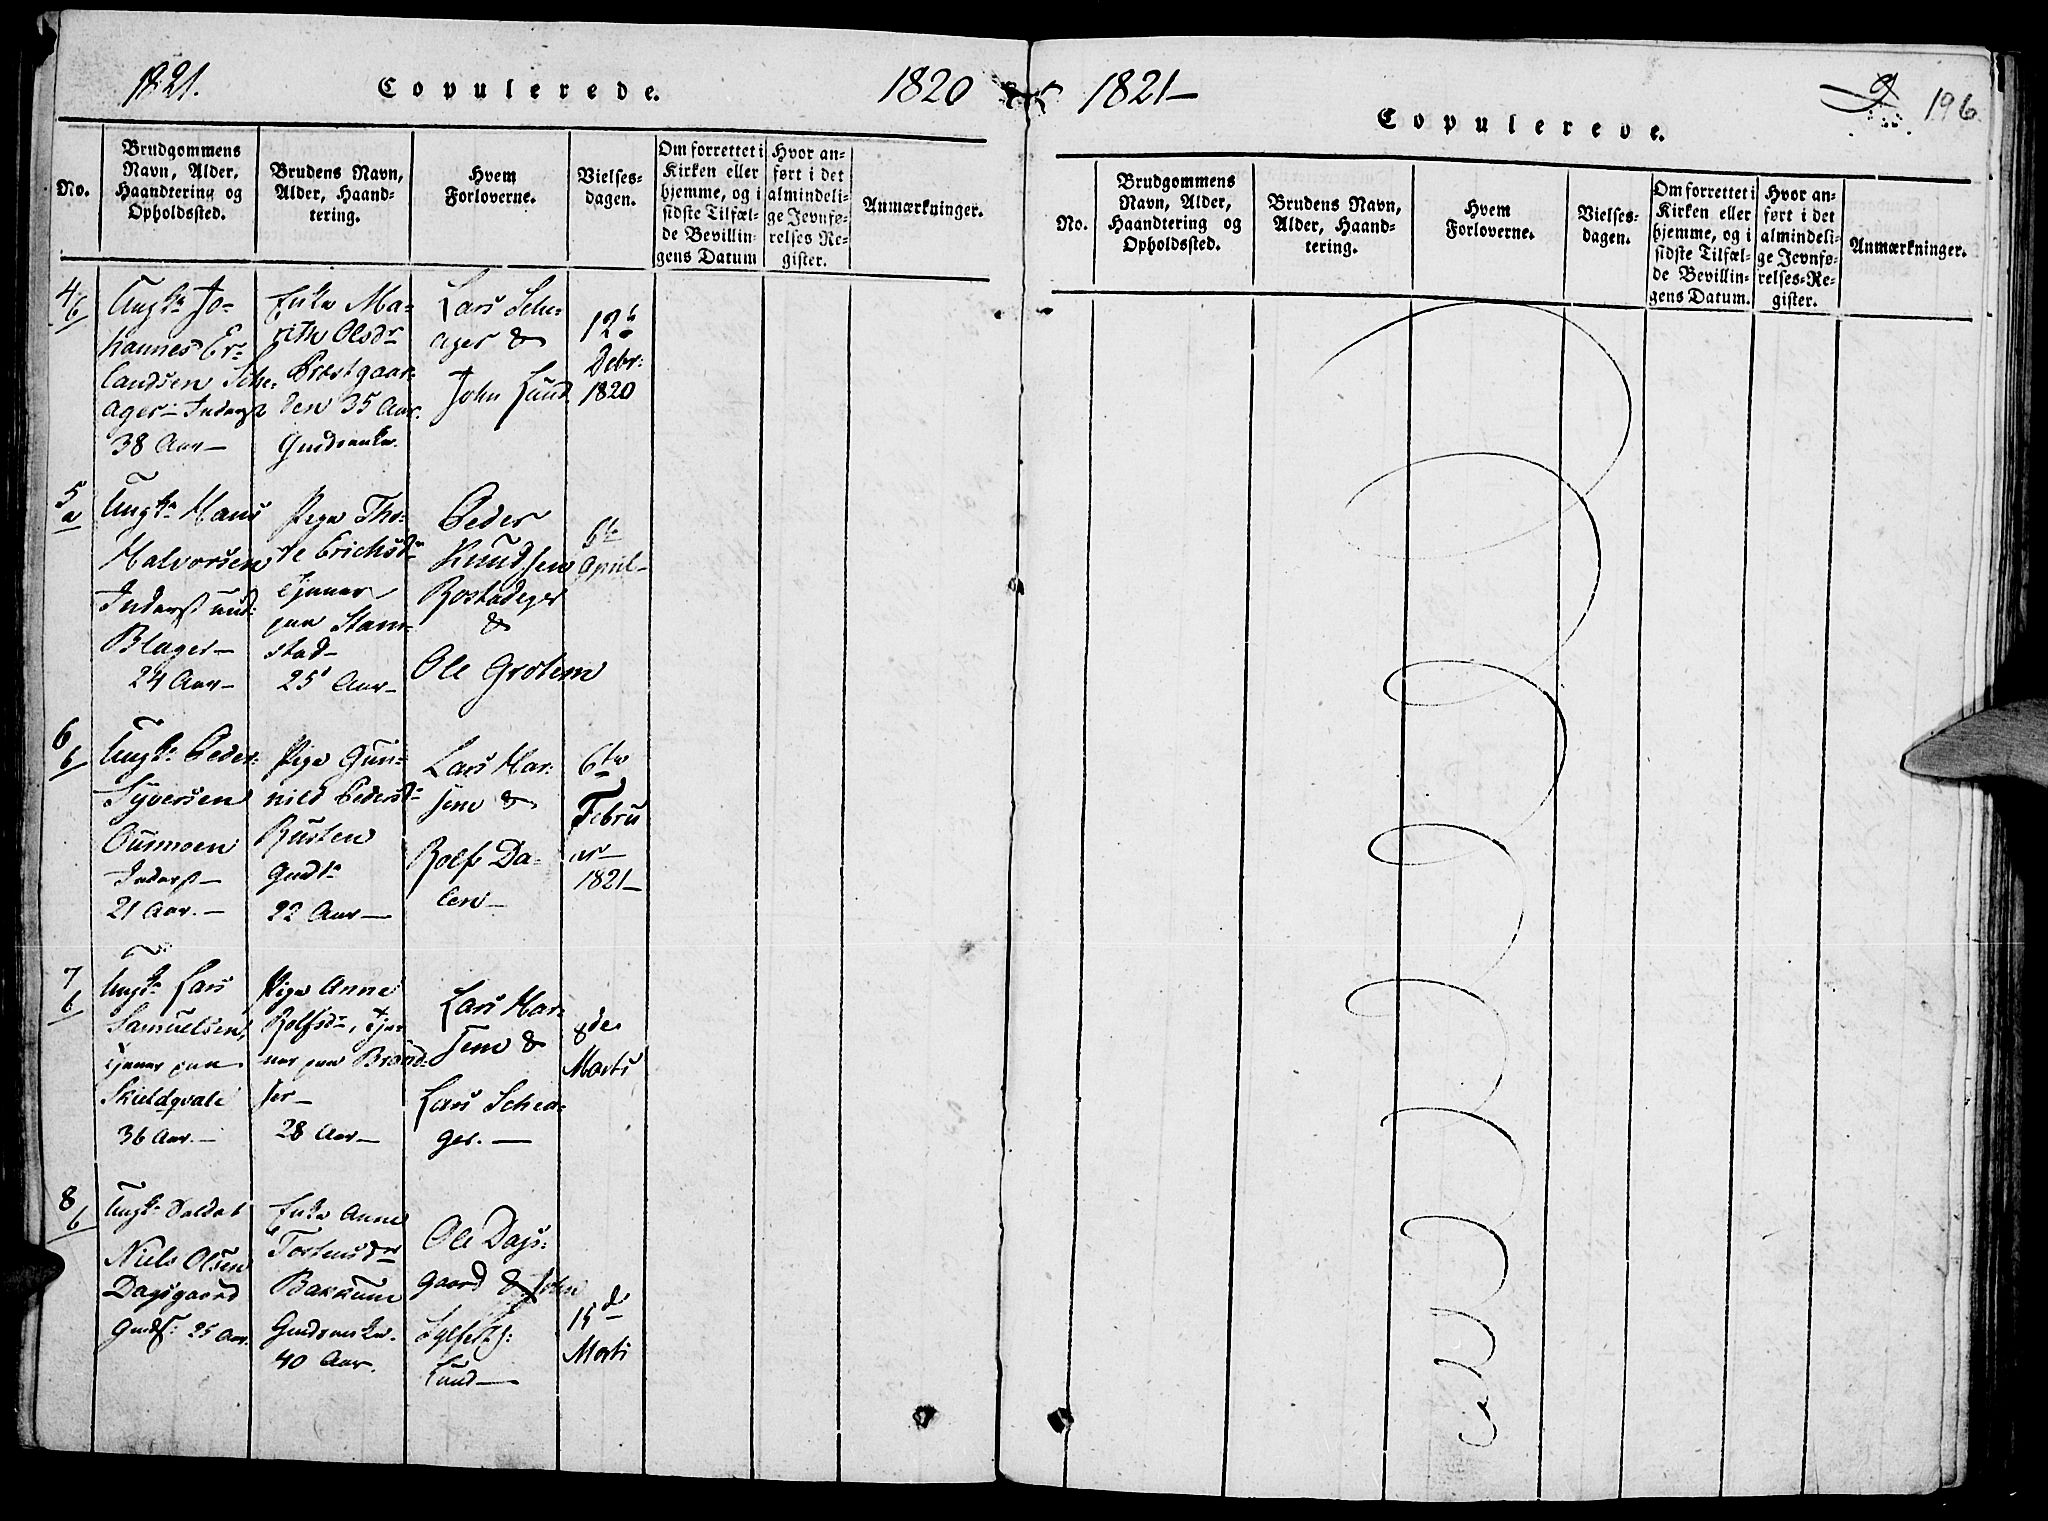 1821.
Copulerede.
1820
No.
Brudgommens
Navn, Alder,
Haandtering og
Opholdssted.
Brudens Navn,
Alder, Haand-
tering.
Hvem
Forloverne.
Vielses-
dagen.
Om forrettet i
Kirken eller
hjemme, og i
sidste Tilfæl-
de Bevillin-
gens Datum
Hvor an-
ført i det
almindeli-
ge Jevnfø-
relses Re-
gister.
Anmærkninger.
4
b
Ungk. Jo-
hannes Er-
landsen Sche-
ager Inderst
38 Aar
Enke Ma-
rithe Olsdr
Præstgaar-
den 35 Aar.
Gudsenke.
Lars Sche-
ager &
John Lund
12
Debr:
1820
5
a
Ungk. Hans
Halvorsen
Inderst und:
Blager
24 Aar
Pige Tho-
re Erichsdr
tjener
paa Stam-
stad
25 Aar
Peder
Knudsen
Rostadeger
&
Ole Grotem
6te
April
6
b
Ungk. Peder
Syversen
Ousmoen
Inderst
21 Aar.
Pige Gun-
nild Pedersdr
Rusten
22 Aar
Lars Har-
sem &
Rolf Da-
len
6te
Febru
ar
1821
7
b
Ungk. Lars
Samuelsen,
tjener paa
Skieldqvale
36 Aar.
Pige Anne
Rolfsdr, tje-
ner paa Brand-
ser
28 Aar
Lars Har-
sem &
Lars Schea-
ger.
8de
Marts
8
b
Ungk. Soldat
Niels Olsen
Dagsgaard
Gudsf. 25 Aar.
Enke Anne
Tostensdr
Bakkum
Gudsenke.
40 Aar.
Ole Dags-
gaard & John
Sylfest:
Lund
15d
Marti
1821
Copulerede.
9
196
No.
Brudgommens
Navn, Alder,
Haandtering og
Opholdssted.
Brudens Navn,
Alder, Haand-
tering.
Hvem
Forloverne.
Vielses-
dagen.
Om forrettet i
Kirken eller
hjemme, og i
sidste Tilfæl-
de Bevillin-
gens Datum.
Hvor an-
ført i det
almindeli-
ge Jevnfø-
relses-Re-
gister.
Anmærkninger.